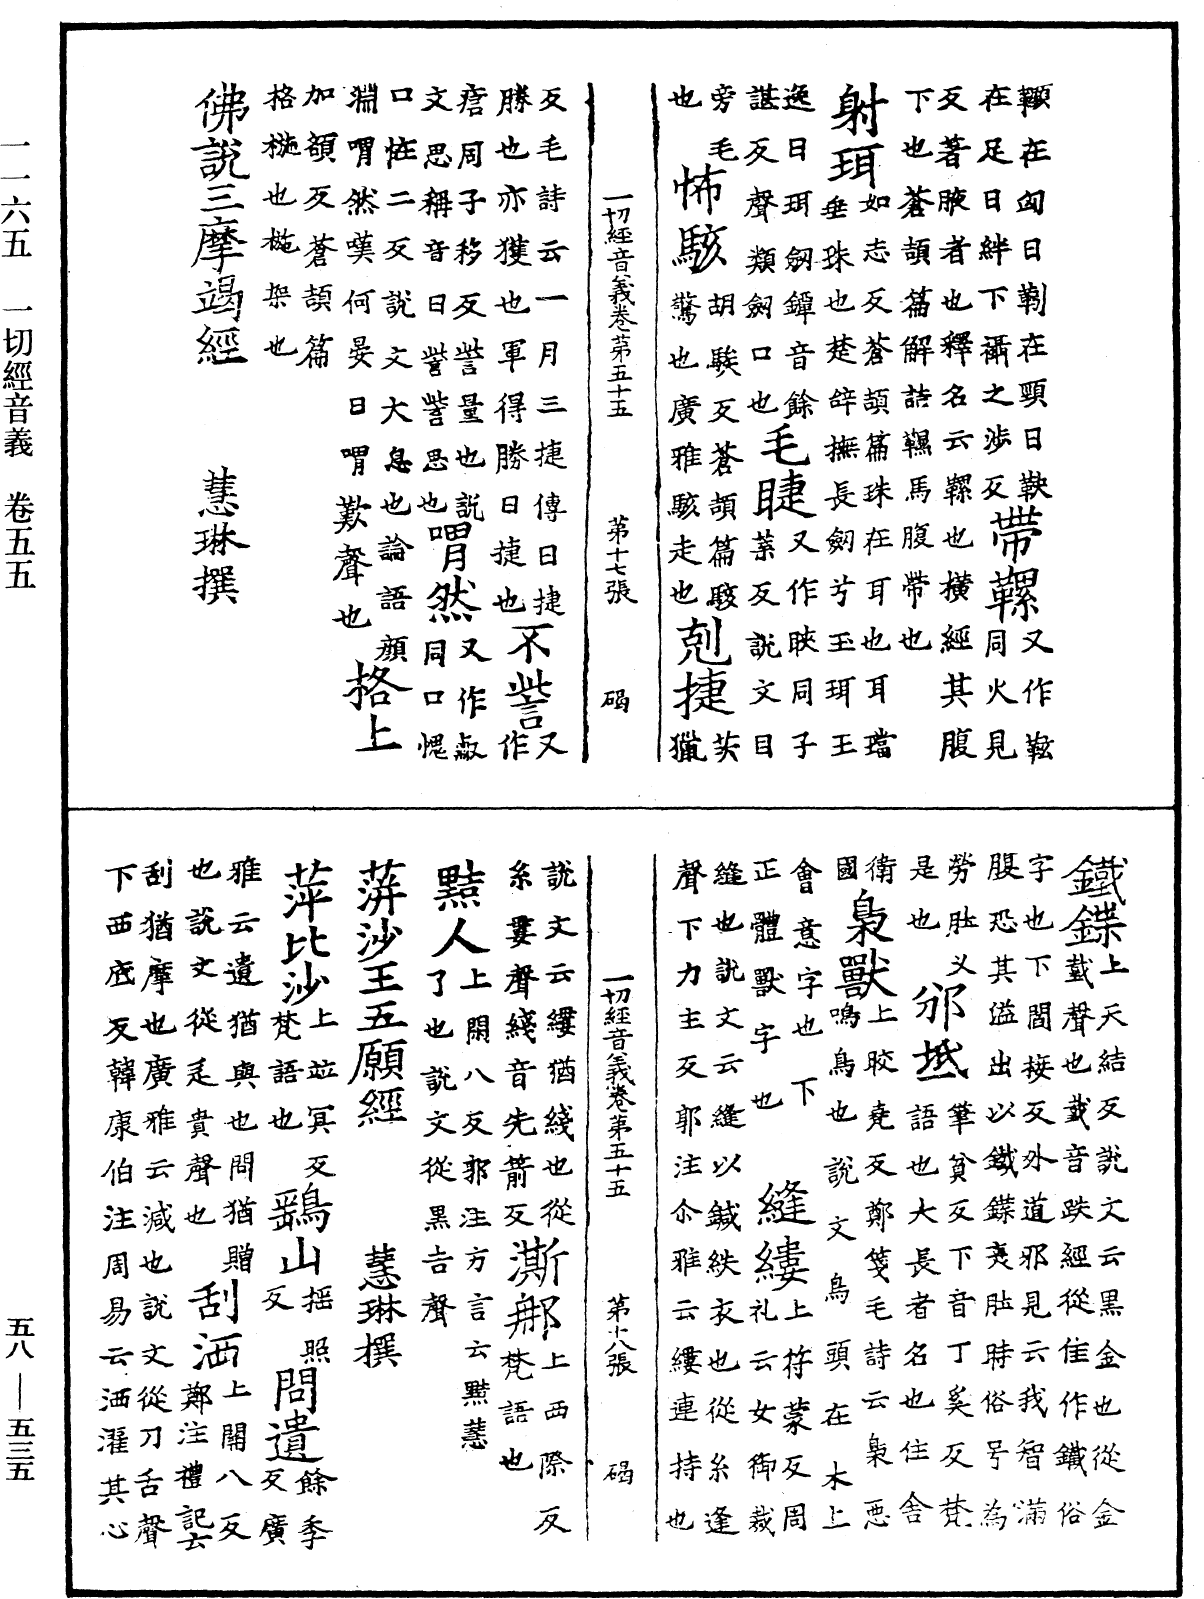 一一六五　一切經音義　卷五五
䩭在匈曰靷在頸曰鞅帶鞸又作䩙
在足曰絆下𧝓之涉反同火見
反著腋者也釋名云䩞也橫經其腹
下也蒼頡篇解詁䩞馬腹帶也
射珥如志反蒼頡篇珠在耳也耳璫
垂珠也楚辞撫長劒兮玉珥王
逸曰珥劒鐔音餘毛睫又作䀹同子
諶反聲類劒口也葉反說文目
旁毛胡駭反蒼頡篇駭
也怖駭驚也廣雅駭走也剋捷獵
一切經音義卷第五十五　第十七張　碣
反毛詩云一月三捷傳曰捷
勝也亦獲也軍得勝曰捷也不訾又作
㾊同子移反訾量也說
文思稱音曰訾訾思也喟然又作嘳同口愧
口恠二反說文大息也論語顔
淵喟然嘆何晏曰喟歎聲也格上
加額反蒼頡篇
格㭟也㭟架也
佛說三摩竭經　慧琳撰
鐵鍱上天結反說文云黑金也從金
𢧜聲也𢧜音跌經從隹作鐵俗
字也下閻接反外道邪見云我智滿
腹恐其溢出以鐵鍱裹肚時俗号為
勞肚乂邠坻筆貧反下音丁奚反梵
是也語也大長者名也住舍
衛梟獸上晈堯反鄭箋毛詩云梟惡
國鳴鳥也說文鳥頭在木上
會意字也下縫縷上符蒙反周
正體獸字也礼云女御裁
縫也說文云縫以鍼紩衣也從糸逢
聲下力主反郭注尒雅云縷連持也
一切經音義卷第五十五　第十八張　碣
說文云縷猶綫也從
糸婁聲綫音先箭反澌那上西際反
梵語也
黠人上閑八反郭注方言云黠慧
了也說文從黑吉聲
蓱沙王五願經　慧琳撰
萍比沙上並冥反鷂山摇照
梵語也反問遺餘季
反廣
雅云遺猶與也問猶贈
也說文從辵貴聲也刮洒上關八反
鄭注禮記云
刮猶摩也廣雅云減也說文從刀舌聲
下西底反韓康伯注周易云洒濯其心
五八—五三五